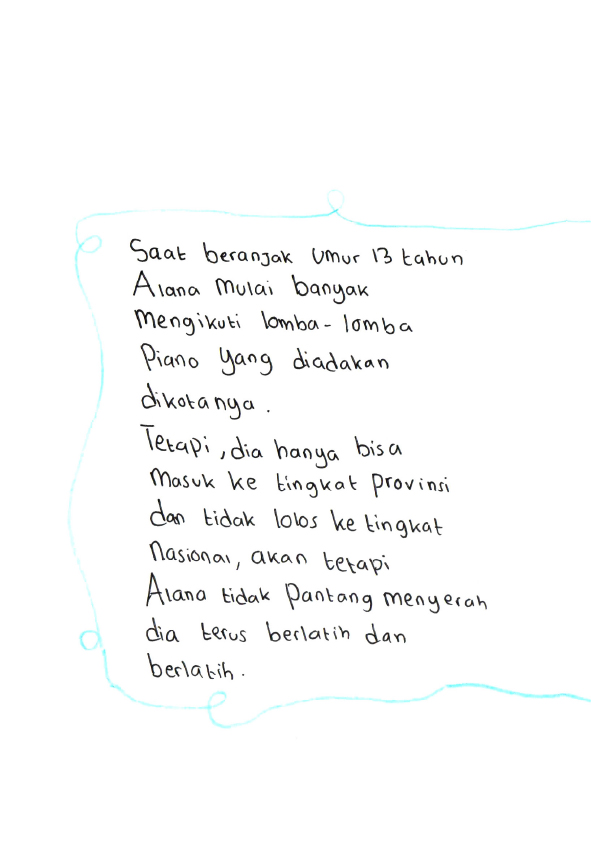 Saat beranjak Umur 13 tahun
Alana Mulai banyak
Mengikuti lomba-lomba
Piano Yang diadakan
dikotanya.
Tetapi, dia hanya bisa
Masuk ke tingkat Provinsi
dan tidak lolos ke tingkat
Nasional, akan tetapi
Alana tidak Pantang menyerah
dia terus berlatih dan
berlatih.